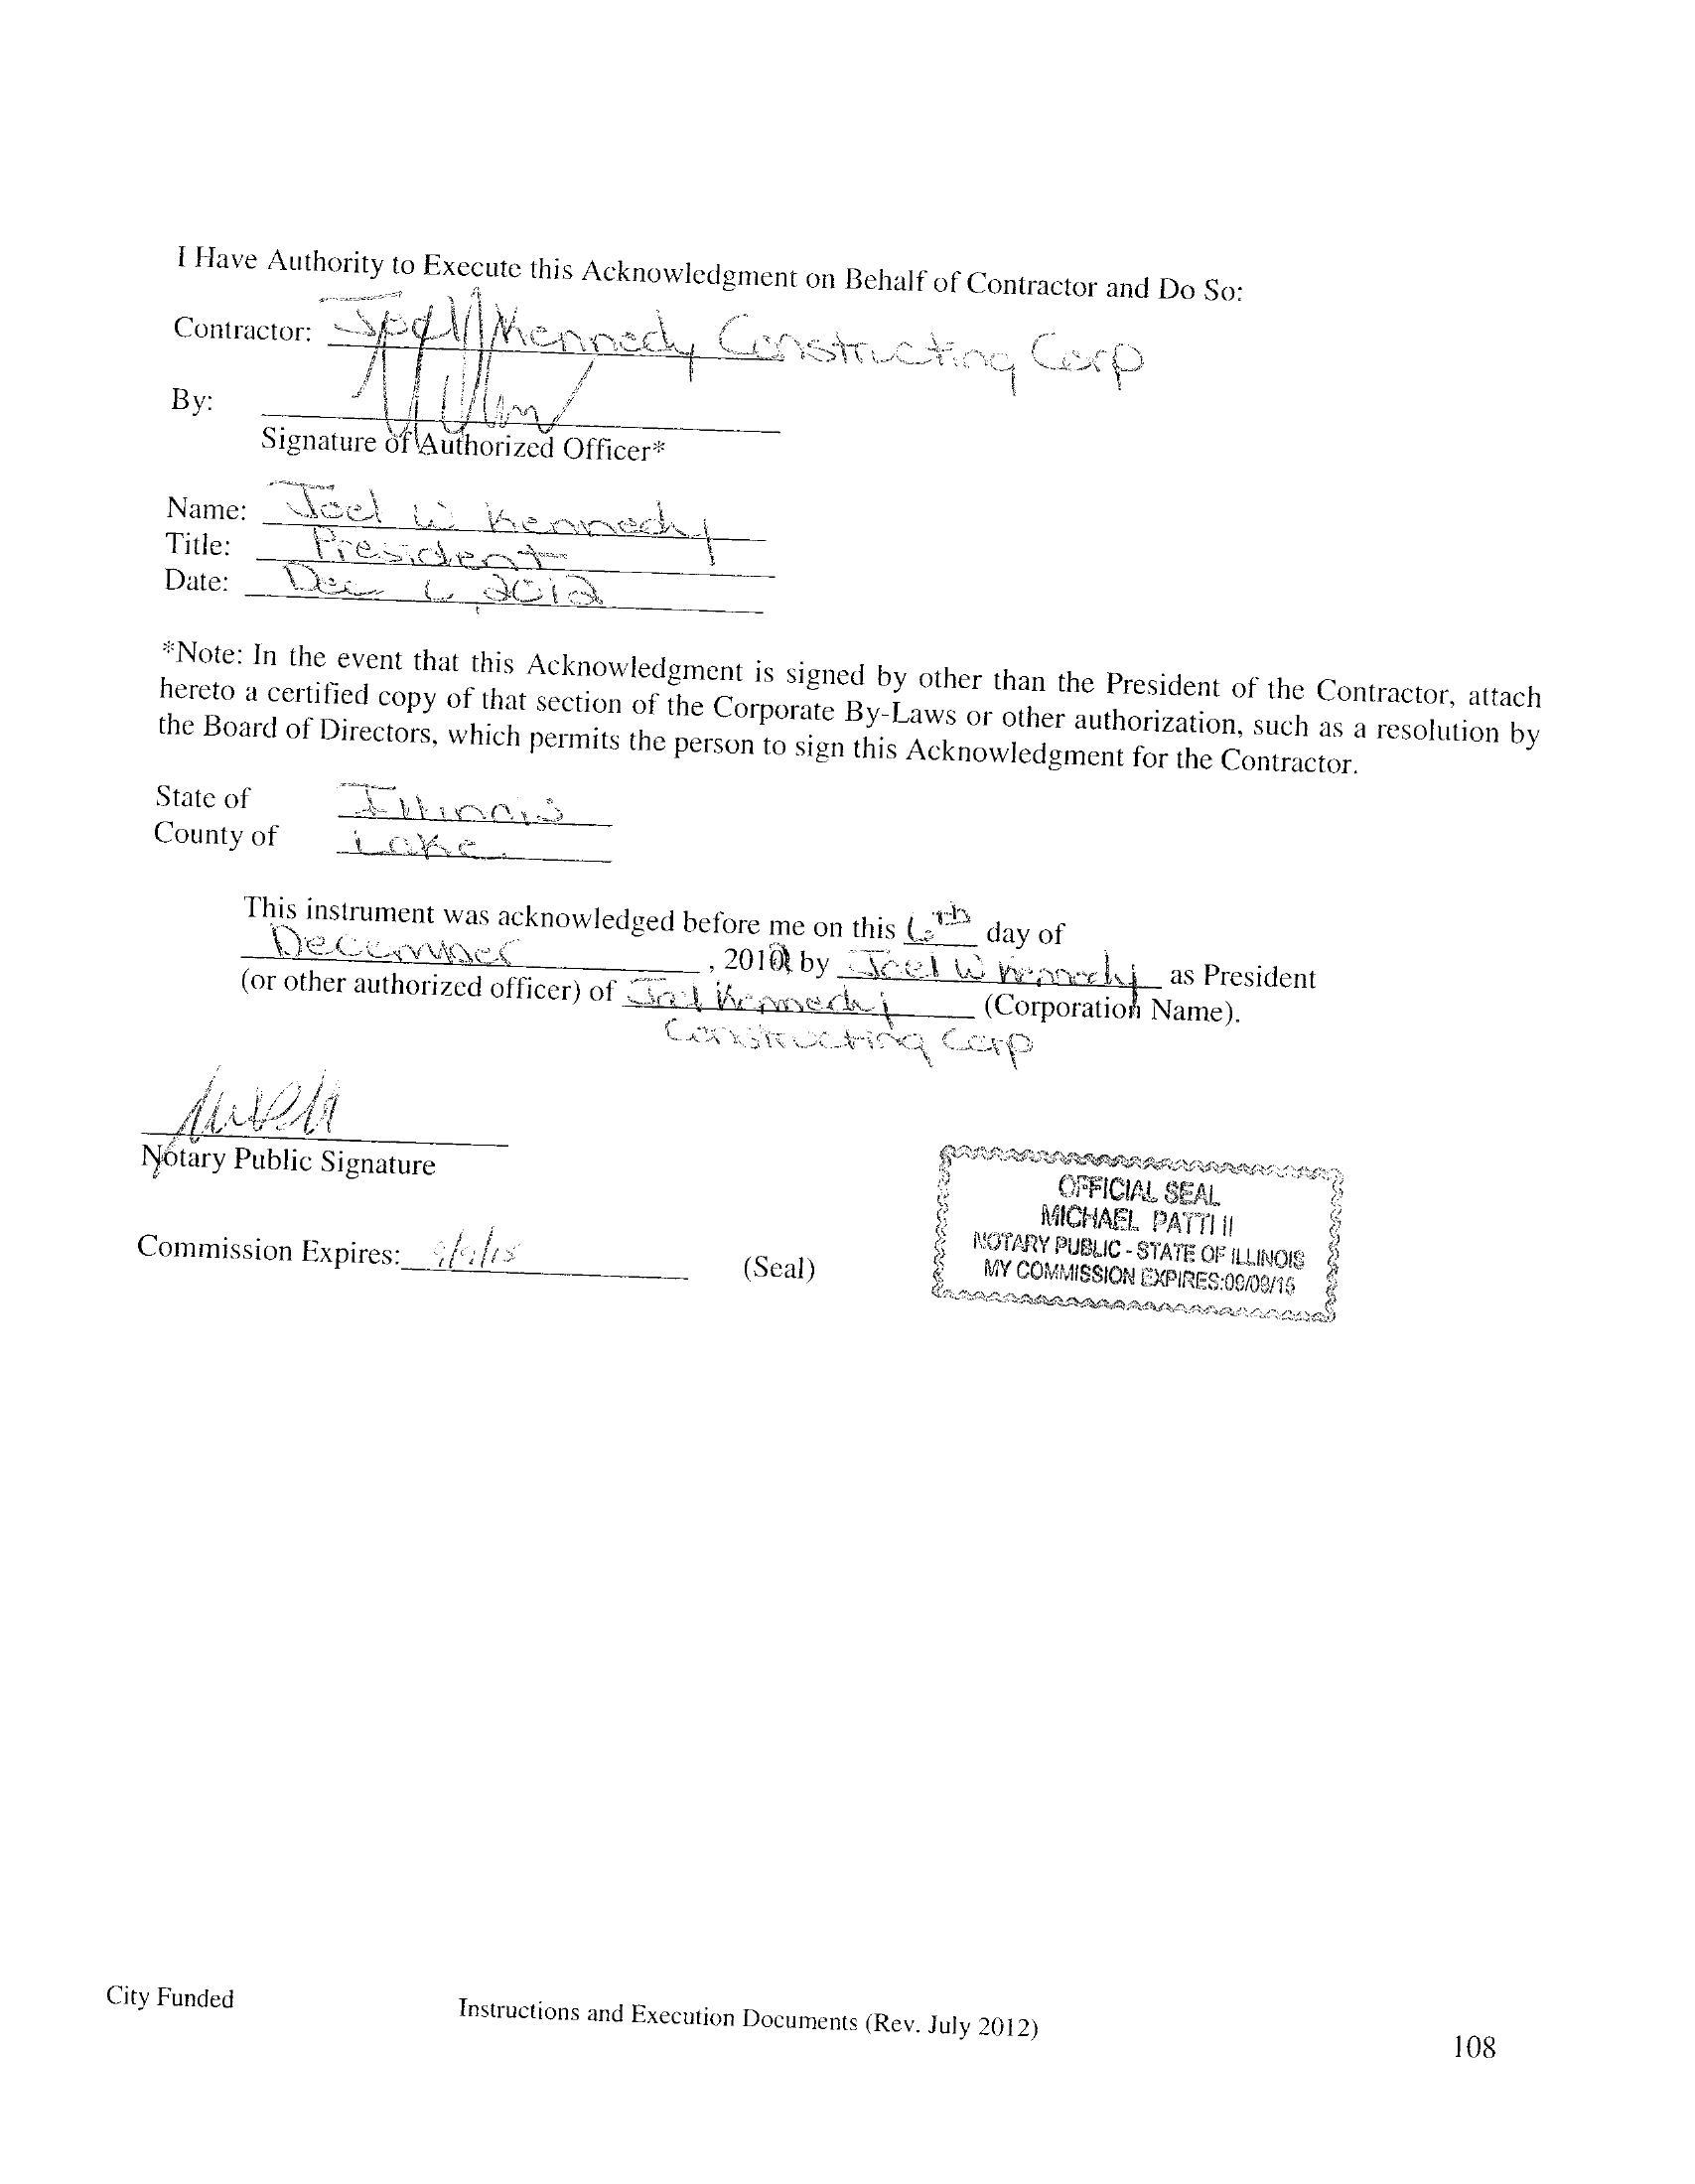 I Have Authority to Execute this Acknowledgment on Behalf of Contractor and Do So:
Contractor: Joel Kennedy Constructing Corp
By:
Signature of Authorized Officer*
Name: Joel W Kennedy
Title: President
Date: Dec 6, 2012
*Note: In the event that this Acknowledgment is signed by other than the President of the Contractor, attach
hereto a certified copy of that section of the Corporate By-Laws or other authorization, such as a resolution by
the Board of Directors, which permits the person to sign this Acknowledgment for the Contractor.
State of Illinois
County of Lake
This instrument was acknowledged before me on this 6th day of
December, 2012 by Joel W Kennedy as President
(or other authorized officer) of Joel Kennedy (Corporation Name).
Constructing Corp
Notary Public Signature
OFFICIAL SEAL
MICHAEL PATTI II
NOTARY PUBLIC - STATE OF ILLINOIS
MY COMMISSION EXPIRES:09/09/15
Commission Expires: 9/9/15 (Seal)
City Funded Instructions and Execution Documents (Rev. July 2012) 108